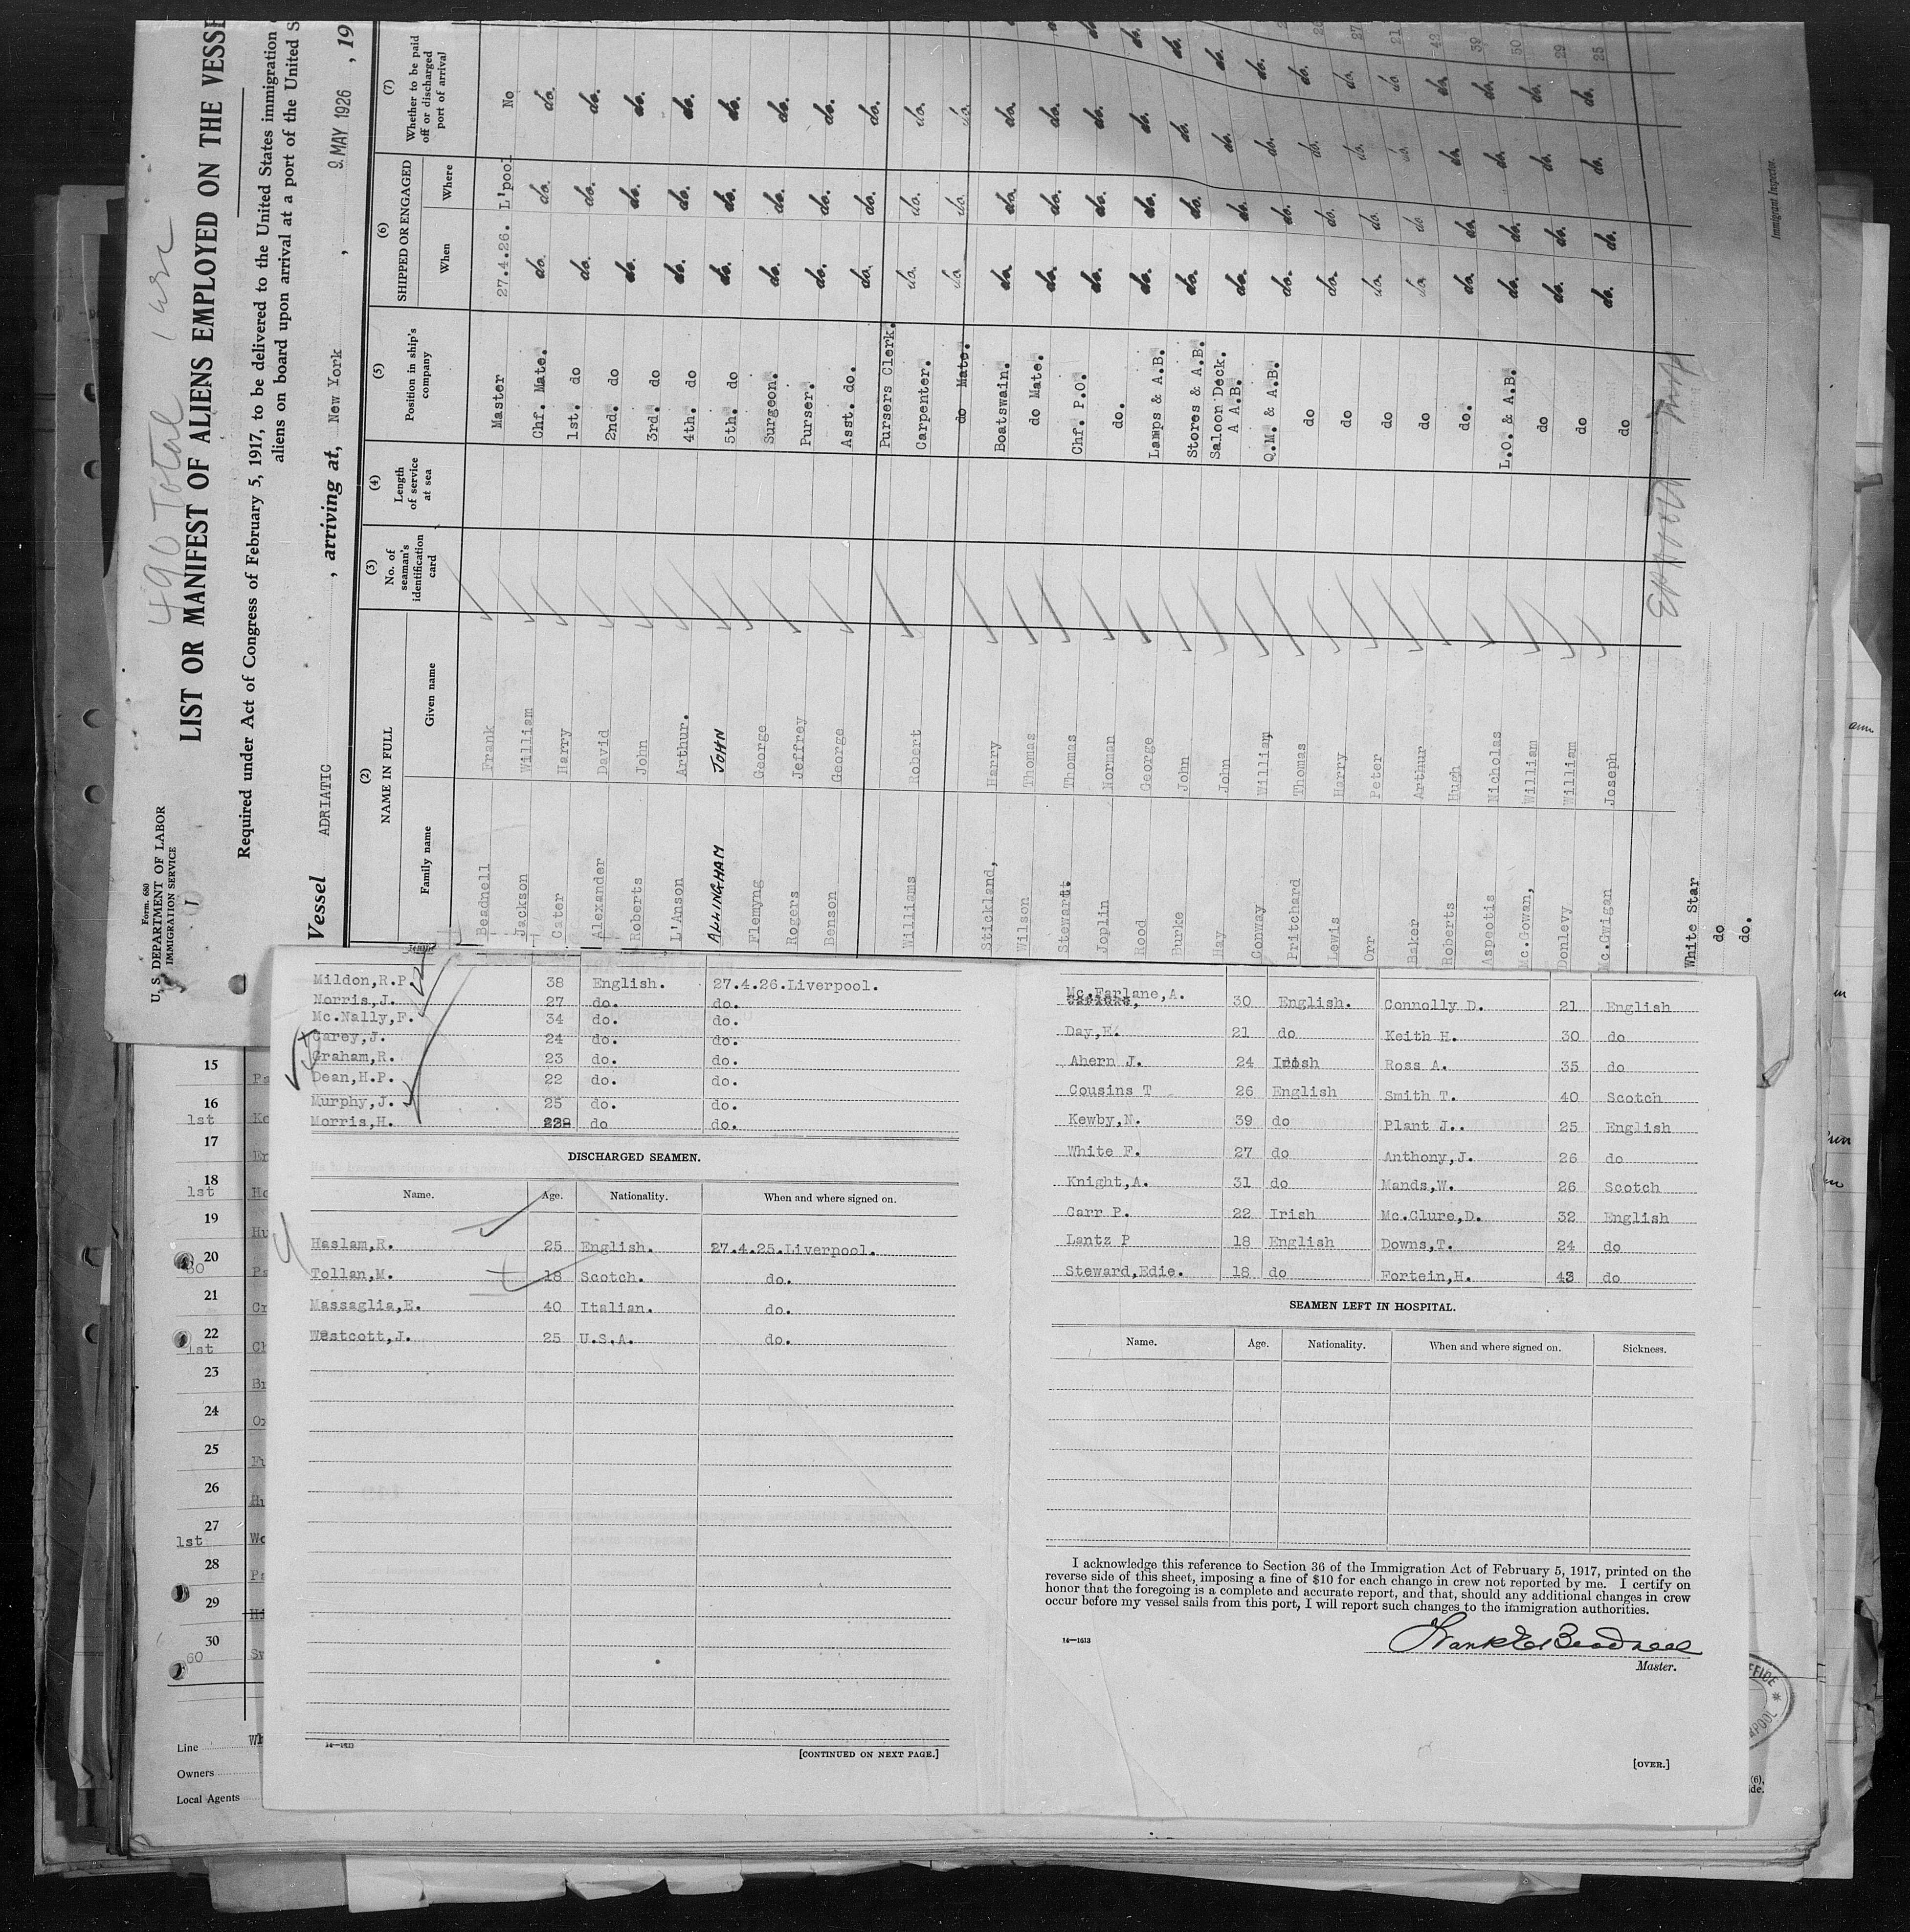 490 Total 1 wsc
LIST OR MANIFEST OF ALIENS EMPLOYED ON THE VESSE
Required under Act of Congress of February 5, 1917, to be delivered to the United States immigration
aliens on board upon arrival at a port of the United S
Form 680
U. S. DEPARTMENT OF LABOR
IMMIGRATION SERVICE
Vessel ADRIATIC , arriving at, New York , 9 MAY 1926 , 19
(2) (3) (4) (5) (6) (7)
NAME IN FULL No. of seaman's identification card Length of service at sea Position in ship's company SHIPPED OR ENGAGED Whether to be paid off or discharged port of arrival
Family name Given name When Where
Beadnell Frank Master 27.4.26. L'pool No
Jackson William Chf. Mate. do. do. do.
Cater Harry 1st. do do. do. do.
Alexander David 2nd. do do. do. do.
Roberts John 3rd. do do. do. do.
L'Anson Arthur. 4th. do do. do. do.
ALLINGHAM JOHN 5th. do do. do. do.
Flemyng George Surgeon. do. do. do.
Rogers Jeffrey Purser. do. do. do.
Benson George Asst. do. do. do. do.
Pursers Clerk. do. do. do.
Williams Robert Carpenter. do. do. do.
do Mate.
Stickland, Harry Boatswain. do. do. do.
Wilson Thomas do Mate. do. do. do.
Stewart Thomas Chf. P.O. do. do. do.
Joplin Norman do. do. do. do.
Hood George Lamps & A.B. do. do. do.
Burke John Stores & A.B. do. do. do.
Hay John Saloon Deck. A A.B. do. do. do.
Conway William, Q.M. & A.B. do. do. do.
Pritchard Thomas do do. do. do.
Lewis Harry do do. do. do.
Orr Peter do do. do. do.
Baker Arthur do do. do. do.
Roberts Hugh do. do. do. do.
Aspeotis Nicholas L.O. & A.B. do. do. do.
Mc.Gowan, William do do. do. do.
Donlevy William do do. do. do.
Mc.Gwigan Joseph do do. do. do.
27
21
42
39
50
29
25
Immigrant Inspector.
White Star
do
do.
Mildon,R.P. 38 English. 27.4.26.Liverpool.
Norris,J. 27 do. do.
Mc.Nally,F. 34 do. do.
Carey,J. 24 do. do.
Graham,R. 23 do. do.
Dean,H.P. 22 do. do.
Murphy,J. 25 do. do.
Morris,H. do do.
DISCHARGED SEAMEN.
Name. Age. Nationality. When and where signed on.
Haslam,R. 25 English. 27.4.25.Liverpool.
Tollan,M. 18 Scotch. do.
Massaglia,E. 40 Italian. do.
Westcott,J. 25 U.S.A. do.
14—1613
[CONTINUED ON NEXT PAGE.]
Mc.Farlane,A. 30 English. Connolly D. 21 English
Day,E. 21 do Keith H. 30 do
Ahern J. 24 Irish Ross A. 35 do
Cousins T 26 English Smith T. 40 Scotch
Kewby,N. 39 do Plant J.. 25 English
White F. 27 do Anthony,J. 26 do
Knight,A. 31 do Mands,W. 26 Scotch
Carr P. 22 Irish Mc.Clure,D. 32 English
Lantz P 18 English Downs,T. 24 do
Steward,Edie. 18 do Fortein,H. 43 do
SEAMEN LEFT IN HOSPITAL.
Name. Age. Nationality. When and where signed on. Sickness.
I acknowledge this reference to Section 36 of the Immigration Act of February 5, 1917, printed on the
reverse side of this sheet, imposing a fine of $10 for each change in crew not reported by me. I certify on
honor that the foregoing is a complete and accurate report, and that, should any additional changes in crew
occur before my vessel sails from this port, I will report such changes to the immigration authorities.
14—1613
Frank E. Beadnell
Master.
[OVER.]
15
16
1st
17
18
1st
19
20
21
22
1st
23
24
25
26
27
1st
28
29
30
60
Line Wh
Owners
Local Agents